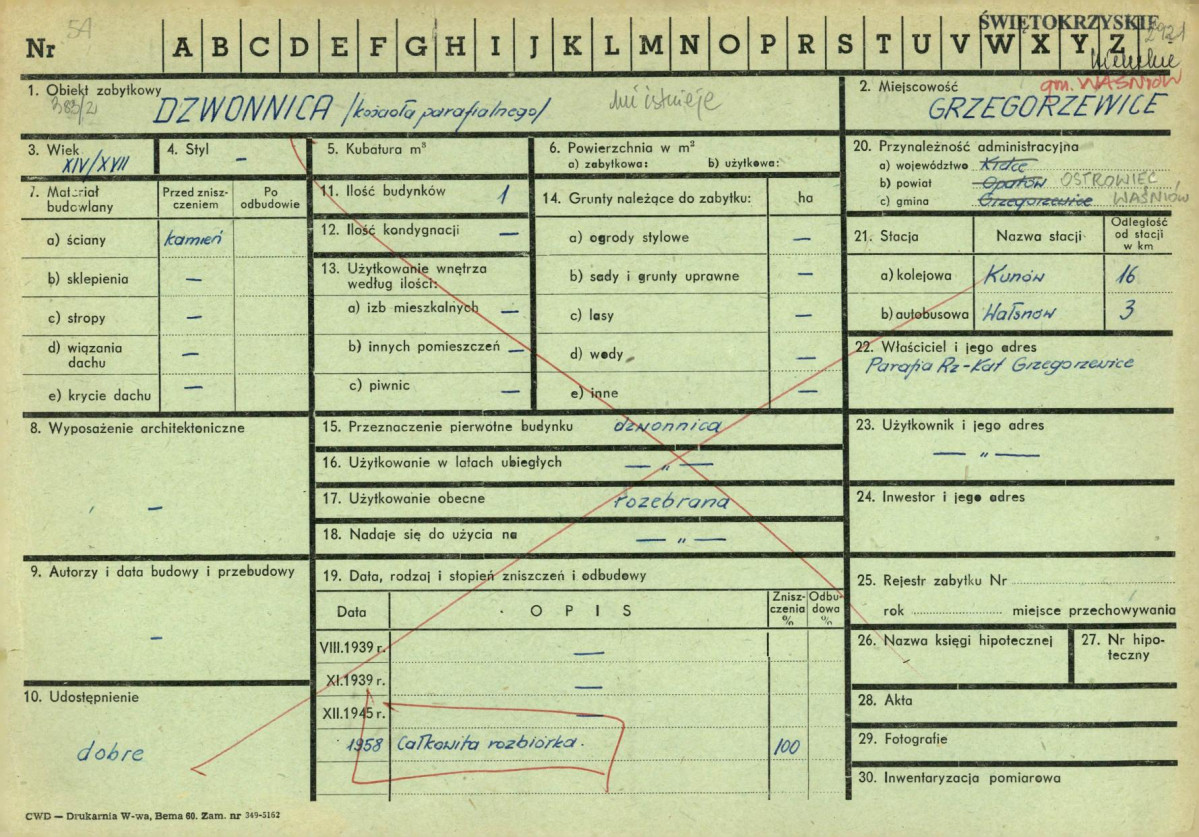 ŚWIĘTOKRZYSKIE
54
2921
Nr A B C D E F G H I J K L M N O P R S T U V W X Y Z
gm. WAŚNIÓW
1. Obiekt zabytkowy
383/2
DZWONNICA /kościoła parafialnego/ nie istnieje
2. Miejscowość
GRZEGORZEWICE
3. Wiek
XIV/XVII
4. Styl
–
5. Kubatura m³
6. Powierzchnia w m²
a) zabytkowa: b) użytkowa:
7. Materiał budowlany
Przed zniszczeniem
Po odbudowie
a) ściany kamień
b) sklepienia –
c) stropy –
d) wiązania dachu –
e) krycie dachu –
8. Wyposażenie architektoniczne
–
9. Autorzy i data budowy i przebudowy
–
10. Udostępnienie
dobre
11. Ilość budynków 1
12. Ilość kondygnacji –
13. Użytkowanie wnętrza
według ilości:
a) izb mieszkalnych –
b) innych pomieszczeń –
c) piwnic –
14. Grunty należące do zabytku: ha
a) ogrody stylowe –
b) sady i grunty uprawne –
c) lasy –
d) wody –
e) inne –
15. Przeznaczenie pierwotne budynku dzwonnica
16. Użytkowanie w latach ubiegłych — „ —
17. Użytkowanie obecne rozebrana
18. Nadaje się do użycia na — „ —
19. Data, rodzaj i stopień zniszczeń i odbudowy
Data OPIS Zniszczenia % Odbudowa %
VIII.1939 r. –
XI.1939 r. –
XII.1945 r. –
1958 Całkowita rozbiórka. 100
20. Przynależność administracyjna
a) województwo Kielce
b) powiat Opatów OSTROWIEC
c) gmina Grzegorzewice WAŚNIÓW
21. Stacja Nazwa stacji Odległość od stacji w km
a) kolejowa Kunów 16
b) autobusowa Wałsnów 3
22. Właściciel i jego adres
Parafia Rz-Kat Grzegorzewice
23. Użytkownik i jego adres
— „ —
24. Inwestor i jego adres
25. Rejestr zabytku Nr
rok miejsce przechowywania
26. Nazwa księgi hipotecznej
27. Nr hipoteczny
28. Akta
29. Fotografie
30. Inwentaryzacja pomiarowa
CWD — Drukarnia W-wa, Bema 60. Zam. nr 349-5162